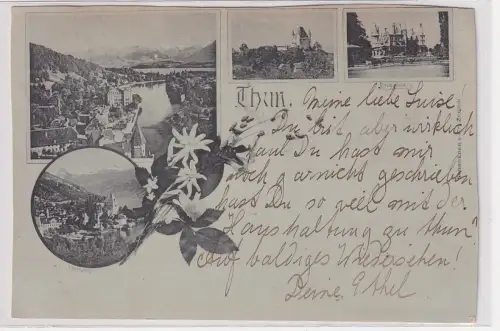 Thun.
Meine liebe Luise!
Du bist aber wirklich
faul Du hast mir
noch garnicht geschrieben
hast Du so veil mit der
Haushaltung zu thun?
Auf baldiges Wiedersehen!
Deine Ethel